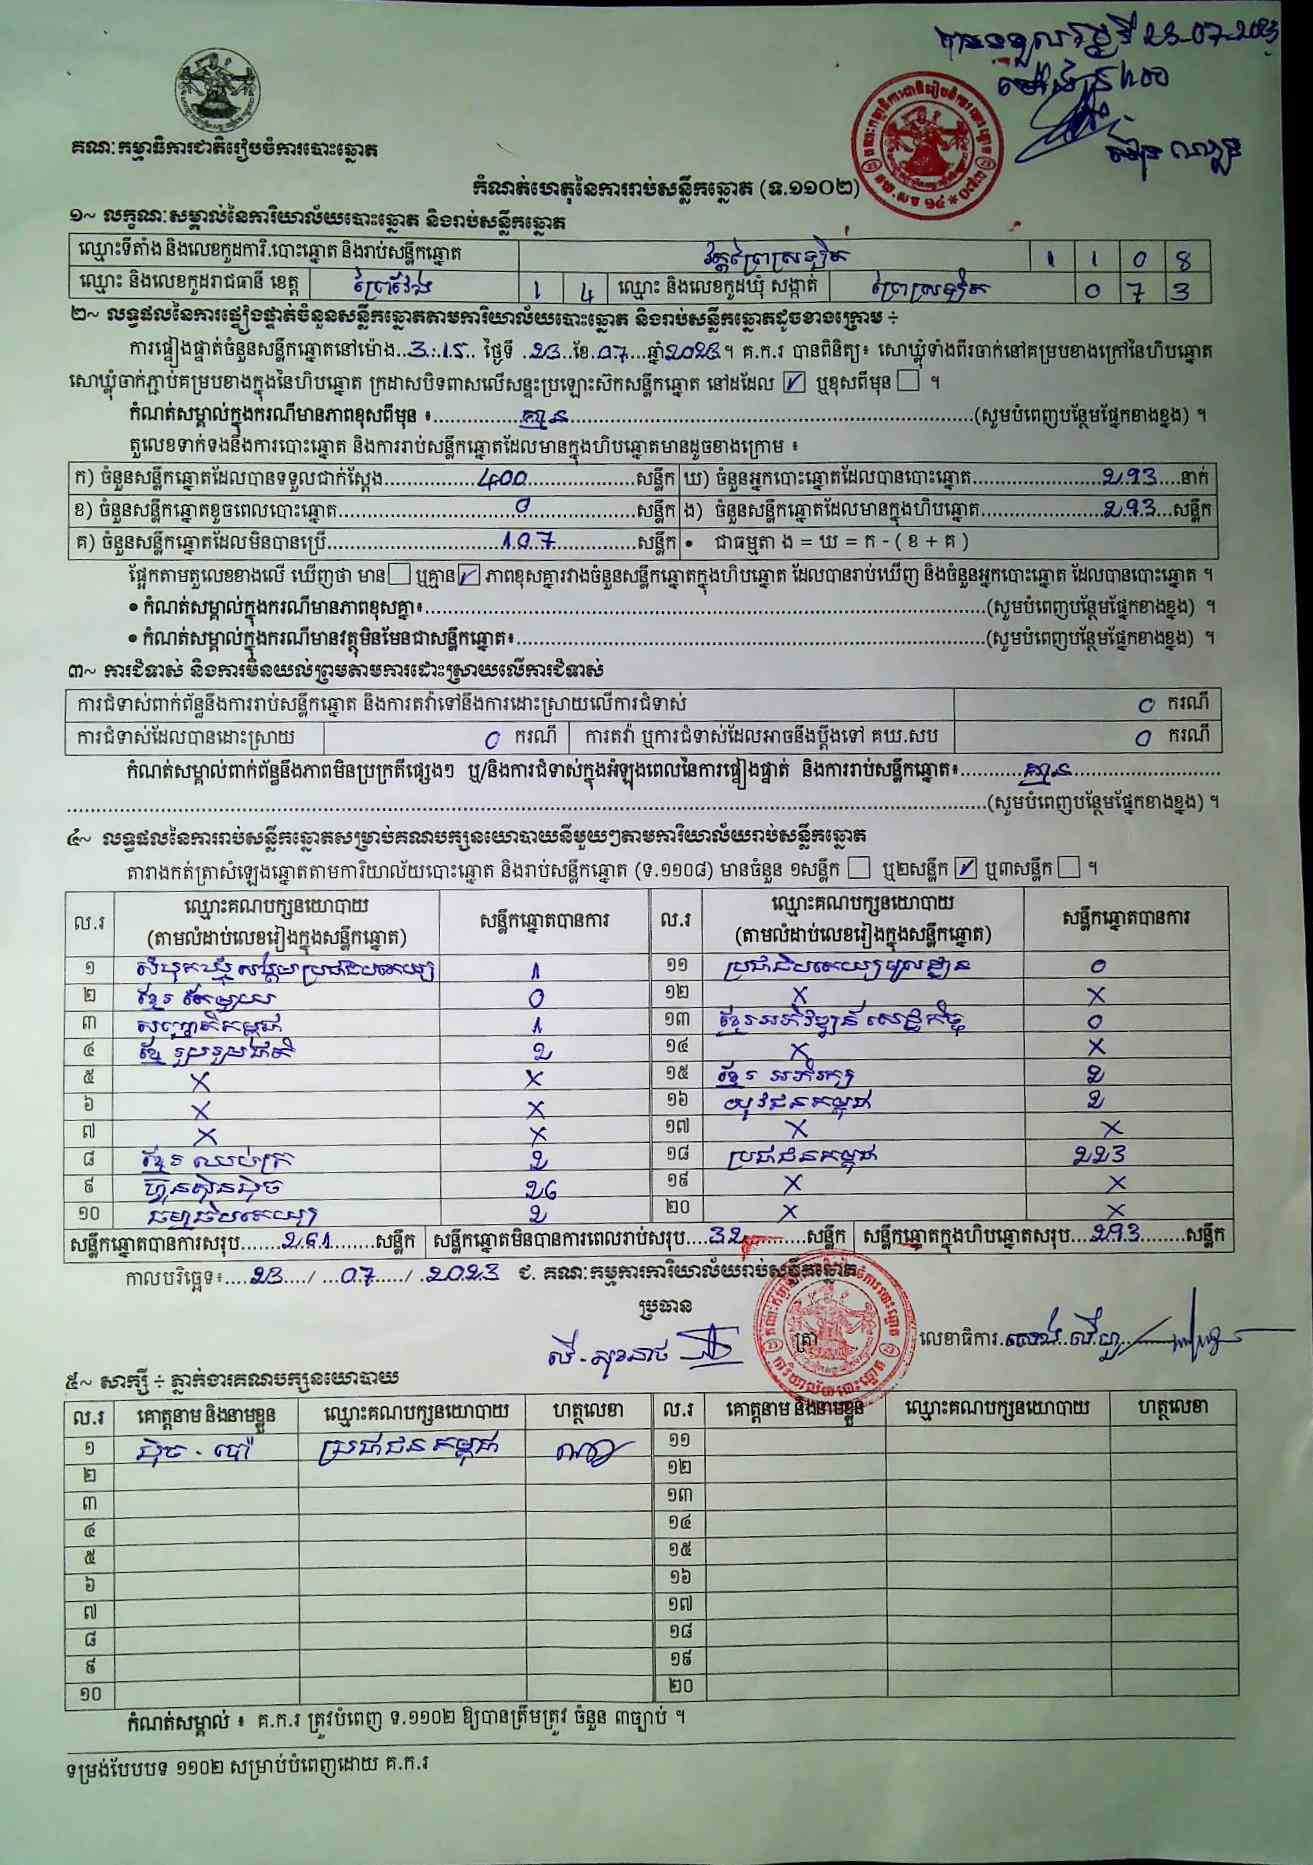 បានទទួលថ្ងៃទី 23-07-2023
គណៈកម្មាធិការជាតិរៀបចំការបោះឆ្នោត
កំណត់ហេតុនៃការរាប់សន្លឹកឆ្នោត (ទ.១១០២)
១~ លក្ខណៈសម្គាល់នៃការិយាល័យបោះឆ្នោត និងរាប់សន្លឹកឆ្នោត
ឈ្មោះទីតាំង និងលេខកូដការិ.បោះឆ្នោត និងរាប់សន្លឹកឆ្នោត វត្តព្រៃស្រឡិត 1 1 0 8
ឈ្មោះ និងលេខកូដរាជធានី ខេត្ត ព្រៃវែង 1 4 ឈ្មោះ និងលេខកូដឃុំ សង្កាត់ ព្រៃស្រឡិត 0 7 3
២~ លទ្ធផលនៃការផ្ទៀងផ្ទាត់ចំនួនសន្លឹកឆ្នោតតាមការិយាល័យបោះឆ្នោត និងរាប់សន្លឹកឆ្នោតដូចខាងក្រោម ÷
ការផ្ទៀងផ្ទាត់ចំនួនសន្លឹកឆ្នោតនៅម៉ោង..3:15.. ថ្ងៃទី .23..ខែ.07...ឆ្នាំ2023។ គ.ក.រ បានពិនិត្យ៖ សោឃ្លុំទាំងពីរចាក់នៅគម្របខាងក្រៅនៃហិបឆ្នោត
សោឃ្លុំចាក់ភ្ជាប់គម្របខាងក្នុងនៃហិបឆ្នោត ក្រដាសបិទពាសលើសន្ទះប្រឡោះស៊កសន្លឹកឆ្នោត នៅដដែល ✓ ឬខុសពីមុន ។
កំណត់សម្គាល់ក្នុងករណីមានភាពខុសពីមុន ៖ គ្មាន (សូមបំពេញបន្ថែមផ្នែកខាងខ្នង) ។
តួលេខទាក់ទងនឹងការបោះឆ្នោត និងការរាប់សន្លឹកឆ្នោតដែលមានក្នុងហិបឆ្នោតមានដូចខាងក្រោម ៖
ក) ចំនួនសន្លឹកឆ្នោតដែលបានទទួលជាក់ស្តែង 400 សន្លឹក ឃ) ចំនួនអ្នកបោះឆ្នោតដែលបានបោះឆ្នោត 293 នាក់
ខ) ចំនួនសន្លឹកឆ្នោតខូចពេលបោះឆ្នោត 0 សន្លឹក ង) ចំនួនសន្លឹកឆ្នោតដែលមានក្នុងហិបឆ្នោត 293 សន្លឹក
គ) ចំនួនសន្លឹកឆ្នោតដែលមិនបានប្រើ 107 សន្លឹក • ជាធម្មតា ង = ឃ = ក - ( ខ + គ )
ផ្អែកតាមតួលេខខាងលើ ឃើញថា មាន ឬគ្មាន ✓ ភាពខុសគ្នារវាងចំនួនសន្លឹកឆ្នោតក្នុងហិបឆ្នោត ដែលបានរាប់ឃើញ និងចំនួនអ្នកបោះឆ្នោត ដែលបានបោះឆ្នោត ។
• កំណត់សម្គាល់ក្នុងករណីមានភាពខុសគ្នា៖ (សូមបំពេញបន្ថែមផ្នែកខាងខ្នង) ។
• កំណត់សម្គាល់ក្នុងករណីមានវត្ថុមិនមែនជាសន្លឹកឆ្នោត៖ (សូមបំពេញបន្ថែមផ្នែកខាងខ្នង) ។
៣~ ការជំទាស់ និងការមិនយល់ព្រមតាមការដោះស្រាយលើការជំទាស់
ការជំទាស់ពាក់ព័ន្ធនឹងការរាប់សន្លឹកឆ្នោត និងការតវ៉ាទៅនឹងការដោះស្រាយលើការជំទាស់ 0 ករណី
ការជំទាស់ដែលបានដោះស្រាយ 0 ករណី ការតវ៉ា ឬការជំទាស់ដែលអាចនឹងប្តឹងទៅ គឃ.សប 0 ករណី
កំណត់សម្គាល់ពាក់ព័ន្ធនឹងភាពមិនប្រក្រតីផ្សេងៗ ឬ/និងការជំទាស់ក្នុងអំឡុងពេលនៃការផ្ទៀងផ្ទាត់ និងការរាប់សន្លឹកឆ្នោត៖ គ្មាន
(សូមបំពេញបន្ថែមផ្នែកខាងខ្នង) ។
៤~ លទ្ធផលនៃការរាប់សន្លឹកឆ្នោតសម្រាប់គណបក្សនយោបាយនីមួយៗតាមការិយាល័យរាប់សន្លឹកឆ្នោត
តារាងកត់ត្រាសំឡេងឆ្នោតតាមការិយាល័យបោះឆ្នោត និងរាប់សន្លឹកឆ្នោត (ទ.១១០៨) មានចំនួន ១សន្លឹក ឬ២សន្លឹក ✓ ឬ៣សន្លឹក ។
ល.រ ឈ្មោះគណបក្សនយោបាយ (តាមលំដាប់លេខរៀងក្នុងសន្លឹកឆ្នោត) សន្លឹកឆ្នោតបានការ ល.រ ឈ្មោះគណបក្សនយោបាយ (តាមលំដាប់លេខរៀងក្នុងសន្លឹកឆ្នោត) សន្លឹកឆ្នោតបានការ
១ សំបុកឃ្មុំសង្គមប្រជាធិបតេយ្យ 1 ១១ ប្រជាធិបតេយ្យមូលដ្ឋាន 0
២ ខ្មែរ តែមួយ 0 ១២ X X
៣ សញ្ជាតិកម្ពុជា 1 ១៣ ខ្មែរអភិវឌ្ឍន៍ សេដ្ឋកិច្ច 0
៤ ខ្មែរ រួបរួមជាតិ 2 ១៤ X X
៥ X X ១៥ ខ្មែរ អភិរក្ស 2
៦ X X ១៦ យុវជនកម្ពុជា 2
៧ X X ១៧ X X
៨ ខ្មែរ ឈប់ក្រ 2 ១៨ ប្រជាជនកម្ពុជា 223
៩ ហ៊្វុនស៊ិនប៉ិច 26 ១៩ X X
១០ ធម្មាធិបតេយ្យ 2 ២០ X X
សន្លឹកឆ្នោតបានការសរុប 261 សន្លឹក សន្លឹកឆ្នោតមិនបានការពេលរាប់សរុប 32 សន្លឹក សន្លឹកឆ្នោតក្នុងហិបឆ្នោតសរុប 293 សន្លឹក
កាលបរិច្ឆេទ៖ 23 / 07 / 2023 ជ. គណៈកម្មការការិយាល័យរាប់សន្លឹកឆ្នោត
ប្រធាន
ត្រា លេខាធិការ
៥~ សាក្សី ÷ ភ្នាក់ងារគណបក្សនយោបាយ
ល.រ គោត្តនាម និងនាមខ្លួន ឈ្មោះគណបក្សនយោបាយ ហត្ថលេខា ល.រ គោត្តនាម និងនាមខ្លួន ឈ្មោះគណបក្សនយោបាយ ហត្ថលេខា
១ ប្រជាជនកម្ពុជា ១១
២ ១២
៣ ១៣
៤ ១៤
៥ ១៥
៦ ១៦
៧ ១៧
៨ ១៨
៩ ១៩
១០ ២០
កំណត់សម្គាល់ ៖ គ.ក.រ ត្រូវបំពេញ ទ.១១០២ ឱ្យបានត្រឹមត្រូវ ចំនួន ៣ច្បាប់ ។
ទម្រង់បែបបទ ១១០២ សម្រាប់បំពេញដោយ គ.ក.រ